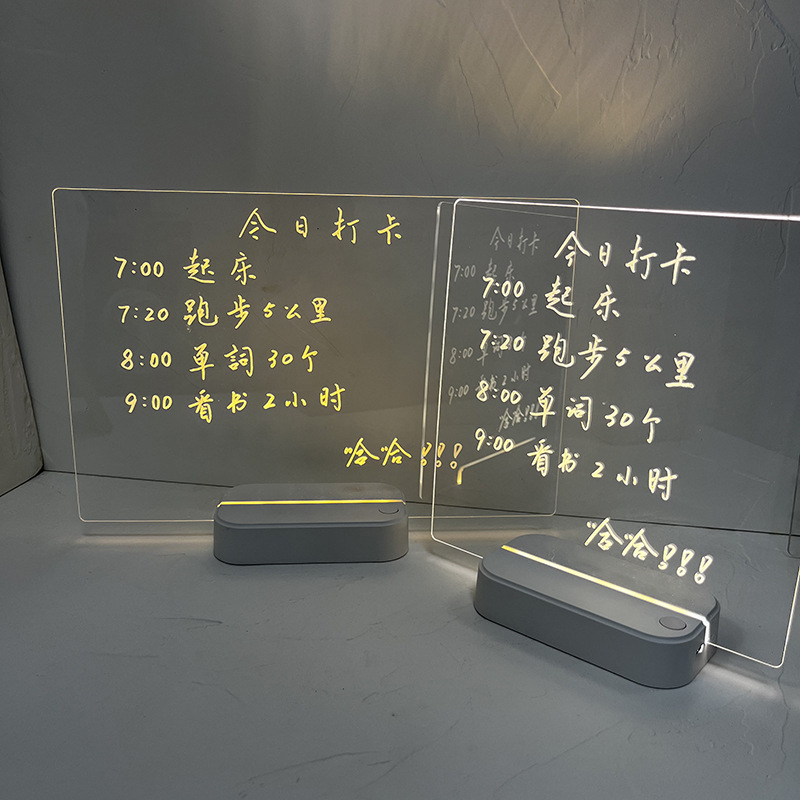 今日打卡
7:00 起床
7:20 跑步5公里
8:00 单詞30个
9:00 看书2小时
哈哈!!!
今日打卡
7:00 起床
7:20 跑步5公里
8:00 单词30个
9:00 看书2小时
哈哈!!!